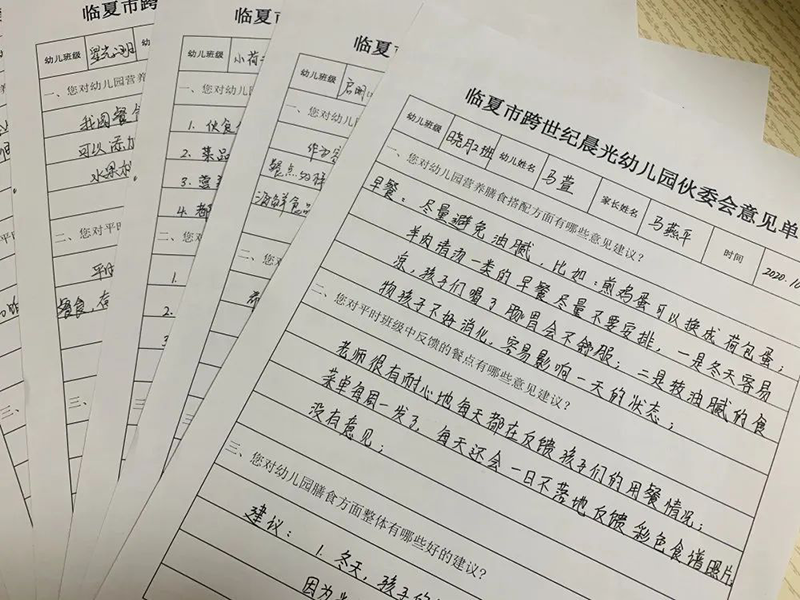 临夏市跨
幼儿班级
一、您对幼儿园营
可以添加
水果
二、您对平时
三、
临夏市
幼儿班级 小荷
一、您对幼
1. 伙食
2. 菜品
3. 营
4. 都
二、您对
1.
2.
三、
临夏市
幼儿班级 启明
一、您对幼儿
海鲜食品
二、您对
三、
临夏市跨世纪晨光幼儿园伙委会意见单
幼儿班级 晓月2班 幼儿姓名 马萱 家长姓名 马燕平 时间 2020.10
一、您对幼儿园营养膳食搭配方面有哪些意见建议?
早餐:尽量避免油腻,比如:煎鸡蛋可以换成荷包蛋;
羊肉清汤一类的早餐尽量不要安排,一是冬天容易
凉,孩子们喝了肠胃会不舒服;二是较油腻的食
物孩子不好消化,容易影响一天的状态;
二、您对平时班级中反馈的餐点有哪些意见建议?
老师很有耐心地每天都在反馈孩子们的用餐情况;
菜单每周一发了,每天还会一日不落地反馈彩色食谱照片
没有意见;
三、您对幼儿园膳食方面整体有哪些好的建议?
建议:1. 冬天,孩子的
因为